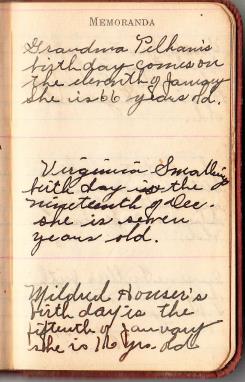 MEMORANDA
Grandma Pelham's
birthday comes on
the eleventh of January
she is 66 years old.
Virginia Smalling
birthday is the
nineteenth of Dec.
she is seven
years old.
Mildred Houser's
birthday is the
fifteenth of January
she is 16 yrs. old